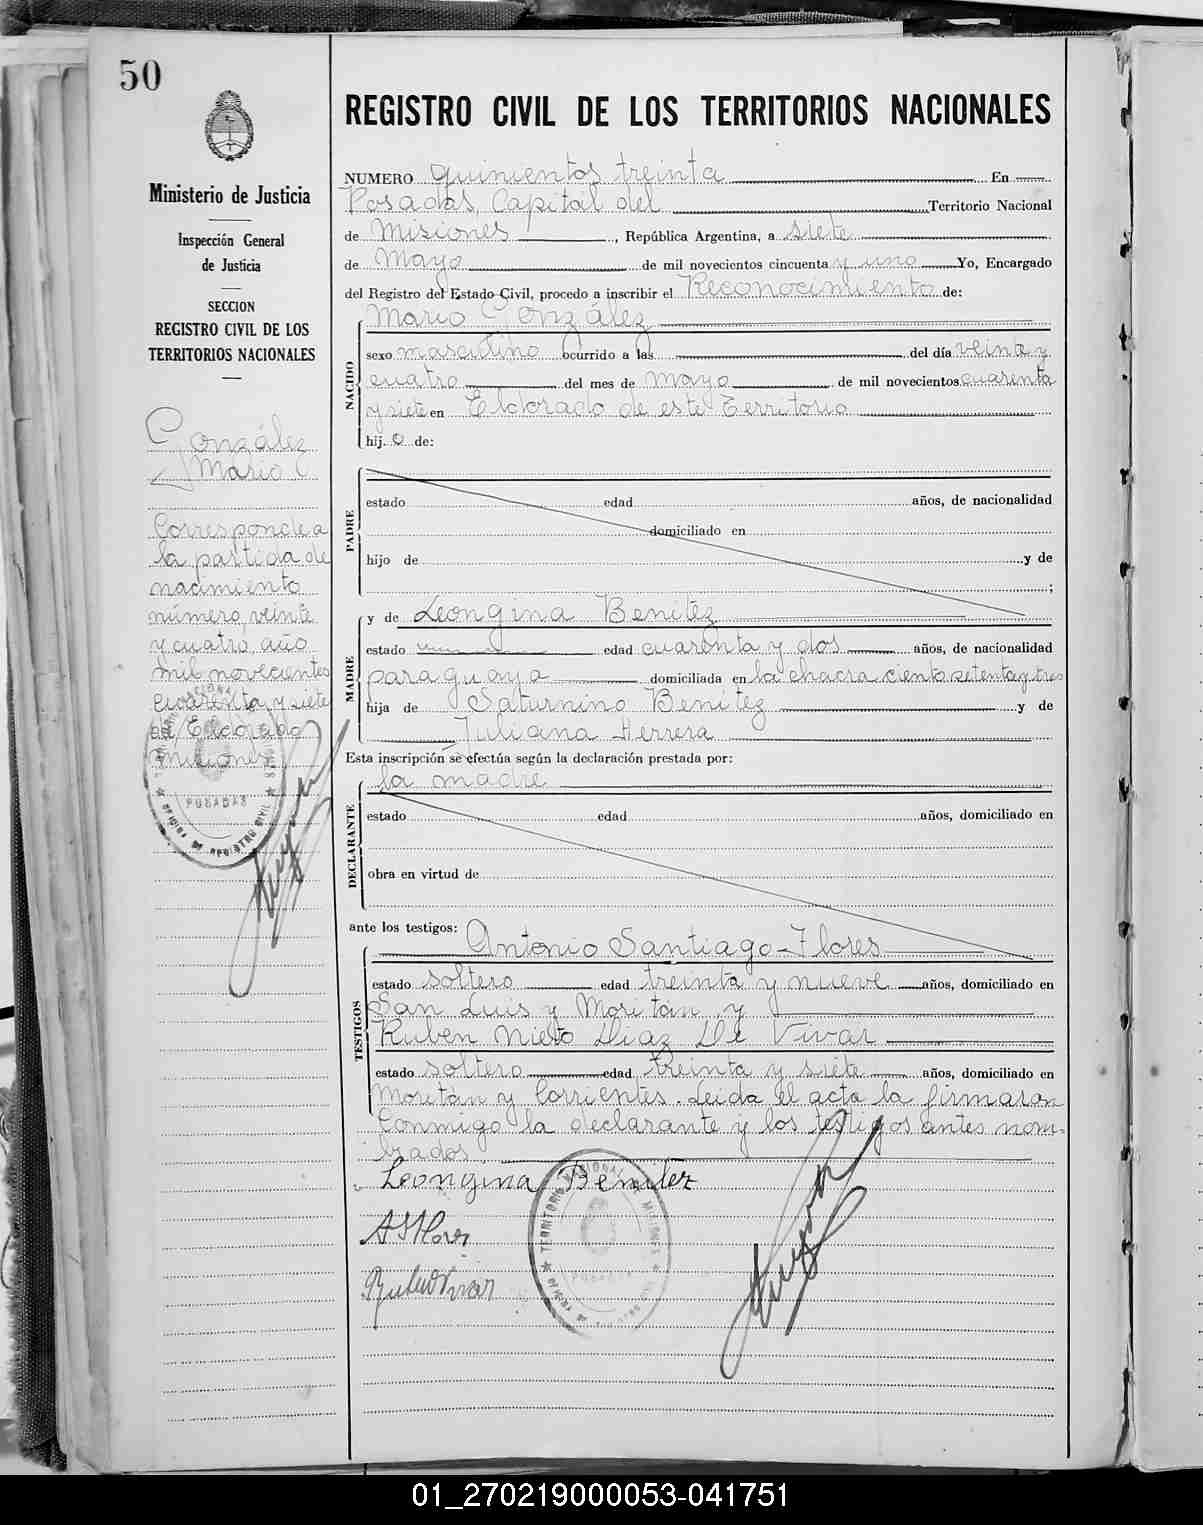 50
Ministerio de Justicia
Inspección General
de Justicia
SECCION
REGISTRO CIVIL DE LOS
TERRITORIOS NACIONALES
González
Mario
Corresponde a
la partida de
nacimiento
número veinte
y cuatro año
mil novecientos
cuarenta y siete
de Eldorado
Misiones
POSADAS
OFICINA DE REGISTRO CIVIL
REGISTRO CIVIL DE LOS TERRITORIOS NACIONALES
NUMERO quinientos treinta En
Posadas, Capital del Territorio Nacional
de Misiones, República Argentina, a siete
de Mayo de mil novecientos cincuenta y uno Yo, Encargado
del Registro del Estado Civil, procedo a inscribir el Reconocimiento de:
NACIDO
Mario González
sexo masculino ocurrido a las del día veinte y
cuatro del mes de Mayo de mil novecientos cuarenta
y siete en Eldorado de este Territorio
hij.o de:
PADRE
estado edad años, de nacionalidad
domiciliado en
hijo de y de
;
MADRE
y de Leongina Benítez
estado edad cuarenta y dos años, de nacionalidad
paraguaya domiciliada en la chacra ciento setenta y tres
hija de Saturnino Benítez y de
Juliana Herrera
Esta inscripción se efectúa según la declaración prestada por:
DECLARANTE
la madre
estado edad años, domiciliado en
obra en virtud de
ante los testigos:
TESTIGOS
Antonio Santiago Flores
estado soltero edad treinta y nueve años, domiciliado en
San Luis y Moritán y
Ruben Nieto Diaz De Vivar
estado soltero edad treinta y siete años, domiciliado en
Moritán y Corrientes. Leída el acta la firmaron
conmigo la declarante y los testigos antes nom=
brados
Leongina Benitez
ASFlores
TERRITORIO NACIONAL DE MISIONES
POSADAS
01_270219000053-041751